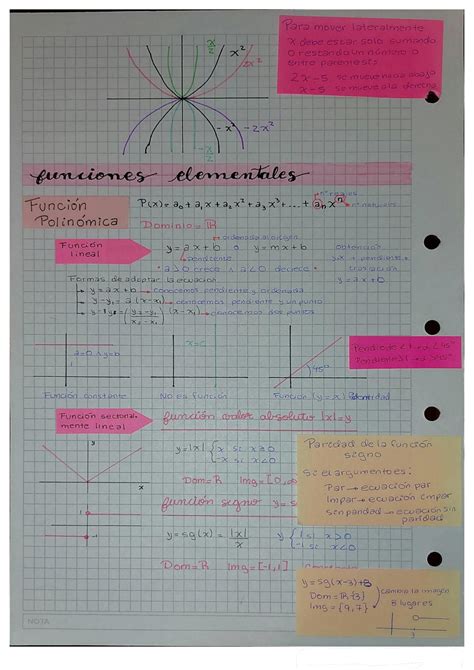 Para mover lateralmente
x debe estar solo sumando
o restando un número o
entre parentesis:
2x-5 se mueve hacia abajo
x-5 se mueve a la derecha
x²
2x²
-x²
-2x²
funciones elementales
Función
Polinómica
P(x) = a₀ + a₁x + a₂x² + a₃x³ + ... + aₙxⁿ
nº reales
nº naturales
Dominio = ℝ
Función
lineal
ordenada al origen
y = ax + b o y = mx + b
pendiente
a>0 crece ∧ a<0 decrece
y = ax + 0
Formas de adoptar la ecuación
y = ax + b → conocemos pendiente y ordenada
y - y₁ = a (x - x₁) → conocemos pendiente y un punto
(x - x₁) → conocemos dos puntos
a=0 ∧ y=b
x=c
45°
Función constante
No es función
Función (y=x) identidad
Función sectorial-
mente lineal
función valor absoluto |x|=y
y=|x| { x si x≥0
-x si x<0
Dom=ℝ Img=[0,
función signo y=s
y=sg(x) = |x|/x y { 1 si x>0
-1 si x<0
Dom=ℝ Img=[-1,1]
Paridad de la función
signo
Si el argumento es:
Par → ecuación par
Impar → ecuación impar
sin paridad → ecuación sin
paridad
y=sg(x-3)+8
Dom=ℝ-{3}
Img={9,7}
cambia la imagen
8 lugares
3
NOTA